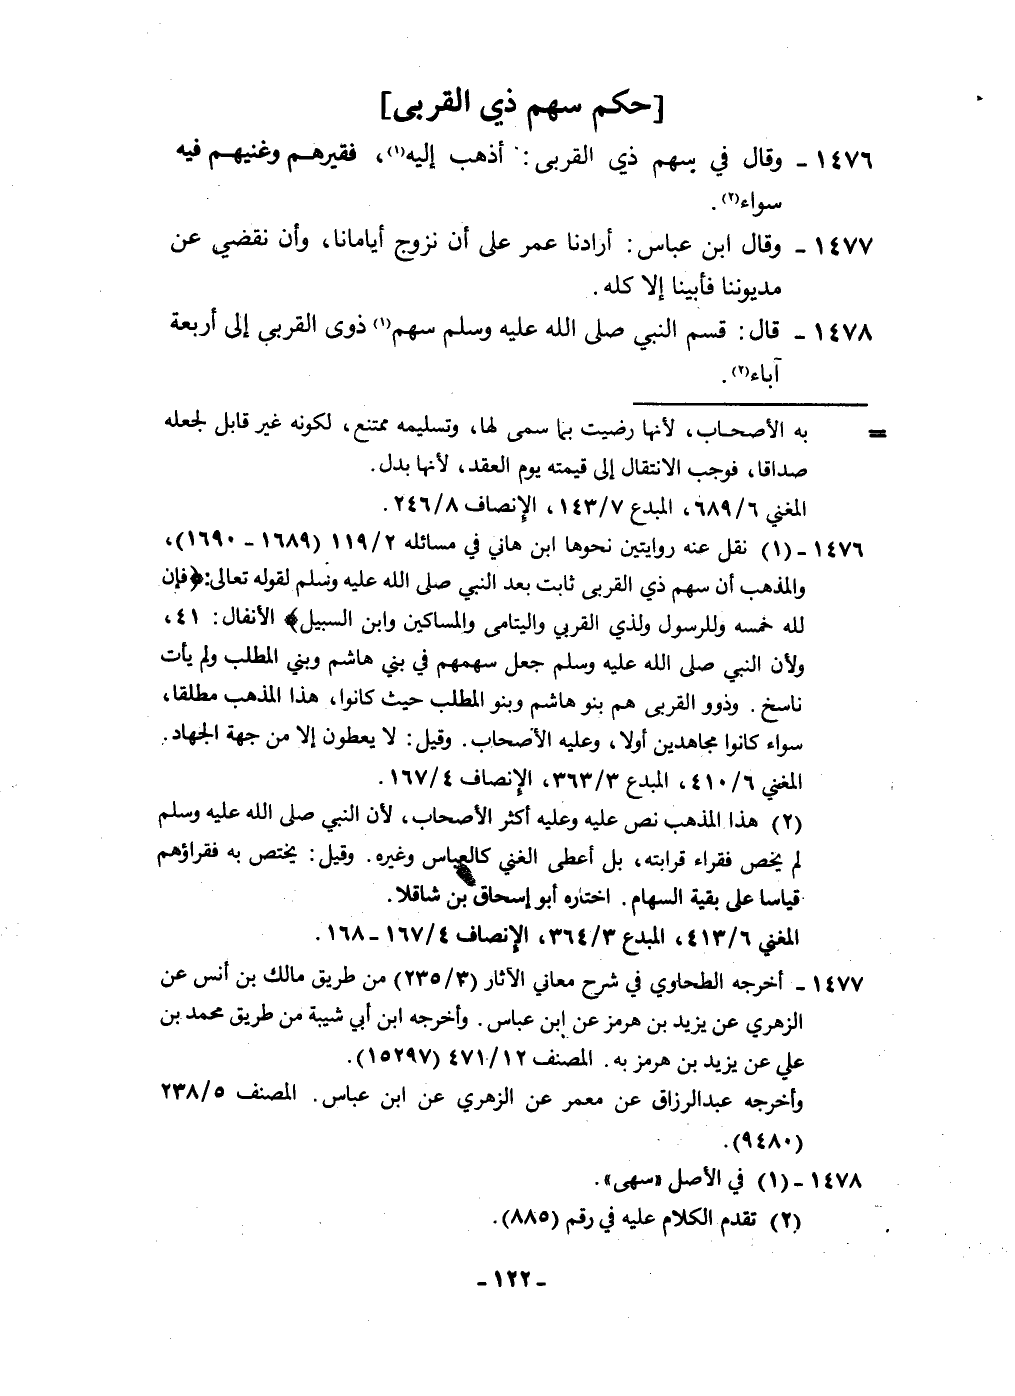 [حكم سهم ذي القربى]
١٤٧٦ ـ وقال في سهم ذي القربى: أذهب إليه(١)، فقيرهم وغنيهم فيه
سواء(٢).
١٤٧٧ ـ وقال ابن عباس: أرادنا عمر على أن نزوج أيامانا، وأن نقضي عن
مديوننا فأبينا إلا كله.
١٤٧٨ ـ قال: قسم النبي صلى الله عليه وسلم سهم(١) ذوى القربى إلى أربعة
آباء(٢).
= به الأصحاب، لأنها رضيت بما سمى لها، وتسليمه ممتنع، لكونه غير قابل لجعله
صداقا، فوجب الانتقال إلى قيمته يوم العقد، لأنها بدل.
المغني ٦/ ٦٨٩، المبدع ٧/ ١٤٣، الإنصاف ٨/ ٢٤٦.
١٤٧٦ ـ (١) نقل عنه روايتين نحوها ابن هاني في مسائله ٢/ ١١٩ (١٦٨٩ ـ ١٦٩٠)،
والمذهب أن سهم ذي القربى ثابت بعد النبي صلى الله عليه وسلم لقوله تعالى: ﴿فإن
لله خمسه وللرسول ولذي القربي واليتامى والمساكين وابن السبيل﴾ الأنفال: ٤١،
ولأن النبي صلى الله عليه وسلم جعل سهمهم في بني هاشم وبني المطلب ولم يأت
ناسخ. وذوو القربى هم بنو هاشم وبنو المطلب حيث كانوا، هذا المذهب مطلقا،
سواء كانوا مجاهدين أولا، وعليه الأصحاب. وقيل: لا يعطون إلا من جهة الجهاد.
المغني ٦/ ٤١٠، المبدع ٣/ ٣٦٣، الإنصاف ٤/ ١٦٧.
(٢) هذا المذهب نص عليه وعليه أكثر الأصحاب، لأن النبي صلى الله عليه وسلم
لم يخص فقراء قرابته، بل أعطى الغني كالعباس وغيره. وقيل: يختص به فقراؤهم
قياسا على بقية السهام. اختاره أبو إسحاق بن شاقلا.
المغني ٦/ ٤١٣، المبدع ٣/ ٣٦٤، الإنصاف ٤/ ١٦٧ ـ ١٦٨.
١٤٧٧ ـ أخرجه الطحاوي في شرح معاني الآثار (٣/ ٢٣٥) من طريق مالك بن أنس عن
الزهري عن يزيد بن هرمز عن ابن عباس. وأخرجه ابن أبي شيبة من طريق محمد بن
علي عن يزيد بن هرمز به. المصنف ١٢/ ٤٧١ (١٥٢٩٧).
وأخرجه عبدالرزاق عن معمر عن الزهري عن ابن عباس. المصنف ٥/ ٢٣٨
(٩٤٨٠).
١٤٧٨ ـ (١) في الأصل «سهى».
(٢) تقدم الكلام عليه في رقم (٨٨٥).
ـ ١٢٢ ـ